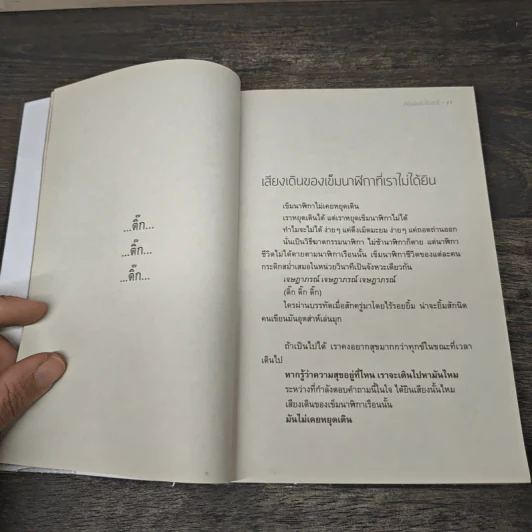 ...ติ๊ก...
...ติ๊ก...
...ติ๊ก...
เสียงเดินของเข็มนาฬิกาที่เราไม่ได้ยิน
เข็มนาฬิกาไม่เคยหยุดเดิน
เราหยุดเดินได้ แต่เราหยุดเข็มนาฬิกาไม่ได้
ทำไมจะไม่ได้ ง่ายๆ แค่ดึงเม็ดมะยม ง่ายๆ แค่ถอดถ่านออก
นั่นเป็นวิธีฆาตกรรมนาฬิกา ไม่ช้านาฬิกาก็ตาย แต่นาฬิกา
ชีวิตไม่ได้ตายตามนาฬิกาเรือนนั้น เข็มนาฬิกาชีวิตของแต่ละคน
กระดิกสม่ำเสมอในหน่วยวินาทีเป็นจังหวะเดียวกัน
เจษฎาภรณ์ เจษฎาภรณ์ เจษฎาภรณ์
(ติ๊ก ติ๊ก ติ๊ก)
ใครผ่านบรรทัดเมื่อสักครู่มาโดยไร้รอยยิ้ม น่าจะยิ้มสักนิด
คนเขียนมันอุตส่าห์เล่นมุก
ถ้าเป็นไปได้ เราคงอยากสุขมากกว่าทุกข์ในขณะที่เวลา
เดินไป
หากรู้ว่าความสุขอยู่ที่ไหน เราจะเดินไปหามันไหม
ระหว่างที่กำลังตอบคำถามนี้ในใจ ได้ยินเสียงนั้นไหม
เสียงเดินของเข็มนาฬิกาเรือนนั้น
มันไม่เคยหยุดเดิน